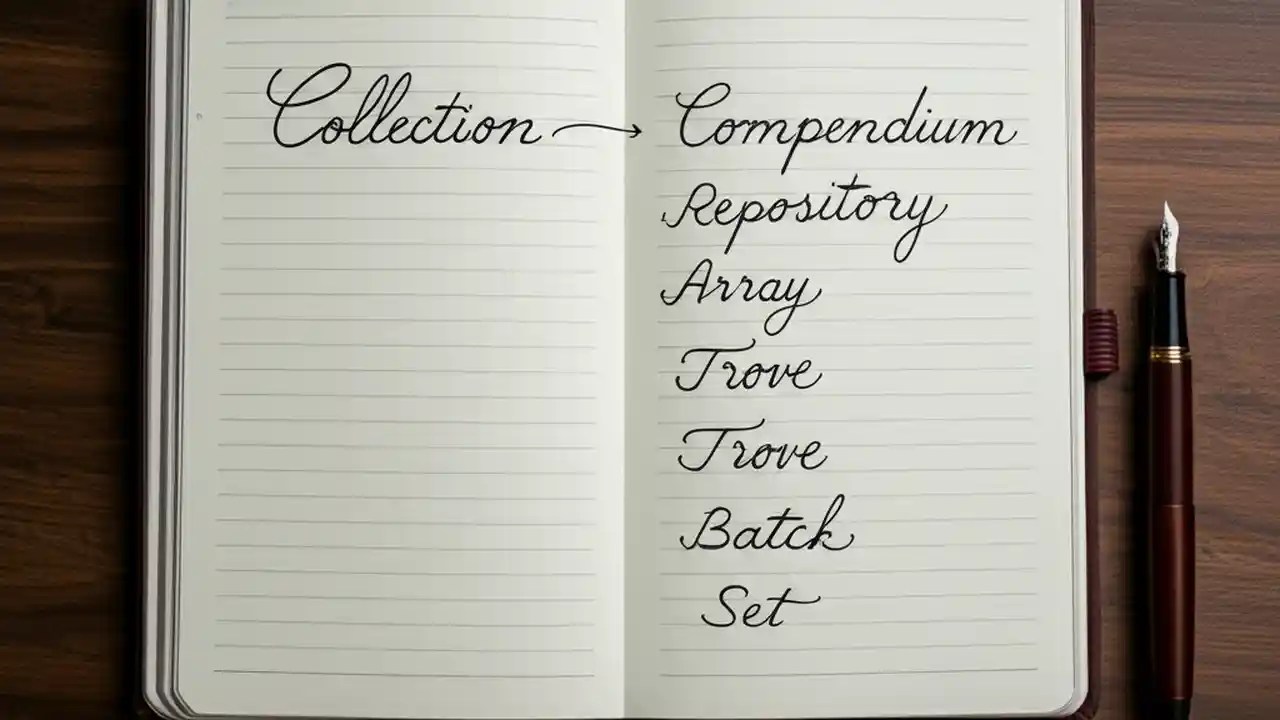 Collection → Compendium
Repository
Array
Trove
Trove
Batck
Set